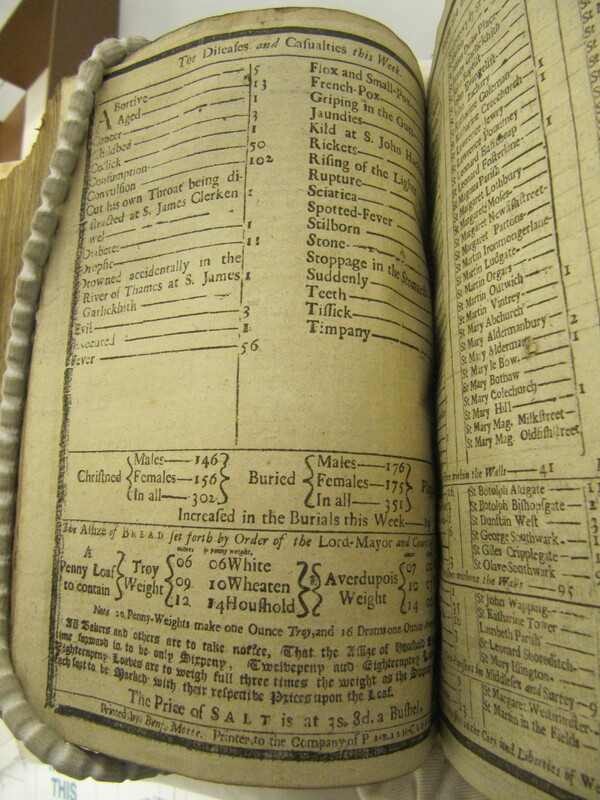 The Diseases and Casualties this Week.
Abortive 5
Aged 13
Cancer 1
Childbed 3
Collick 1
Consumption 50
Convulsion 102
Cut his own Throat being di-
stracted at S. James Clerken
wel 1
Diabetes 1
Dropsie 11
Drowned accidentally in the
River of Thames at S. James
Garlickhith 1
Evil 3
Executed 1
Fever 56
Flox and Small-Pox
French-Pox
Griping in the Guts
Jaundies
Kild at S. John
Rickets
Rising of the Lights
Rupture
Sciatica
Spotted-Fever
Stilborn
Stone
Stoppage in the Stomach
Suddenly
Teeth
Tissick
Timpany
Christned Males 146 Females 156 In all 302
Buried Males 176 Females 175 In all 351
Increased in the Burials this Week
The Assize of BREAD set forth by Order of the Lord-Mayor and Court of
A Penny Loaf to contain Troy Weight
06 06 White
09 10 Wheaten
12 14 Houshold
Averdupois Weight
07
10
14
Note 20 Penny-Weights make one Ounce Troy, and 16 Drams one Ounce
All Bakers and others are to take notice, That the Assize of
time forward is to be only Sixpeny, Twelvepeny and Eighteenpeny
Eighteenpeny-Loaves are to weigh full three times the weight as the
each sort to be Marked with their respective Prizes upon the Loaf.
The Price of SALT is at 3s. 8d. a Bushel.
Printed by Benj. Motte, Printer to the Company of
Katharine Coleman
Lawrence Jewry
Lawrence Pountney
St Margaret Lothbury
St Margaret Moses
St Margaret Newfishstreet
St Margaret Pattons
St Martin Ironmongerlane
St Martin Ludgate
St Martin Orgars
St Martin Outwich 1
St Martin Vintrey
St Mary Abchurch
St Mary Aldermanbury 2
St Mary Alderman 1
St Mary le Bow
St Mary Bothaw
St Mary Colechurch 1
St Mary Hill
St Mary Mag. Milkstreet
St Mary Mag. Oldfishstreet
within the Walls 41
St Botolph Aldgate
St Botolph Bishopsgate
St Dunstan West
St George Southwark
St Giles Cripplegate
St Olave Southwark
without the Walls 95
St John Wapping
St Katharine Tower
Lambeth Parish
St Leonard Shoreditch
St Mary Islington
in Middlesex and Surrey
St Margaret Westminster
St Martin in the Fields
in the City and Liberties of
THIS